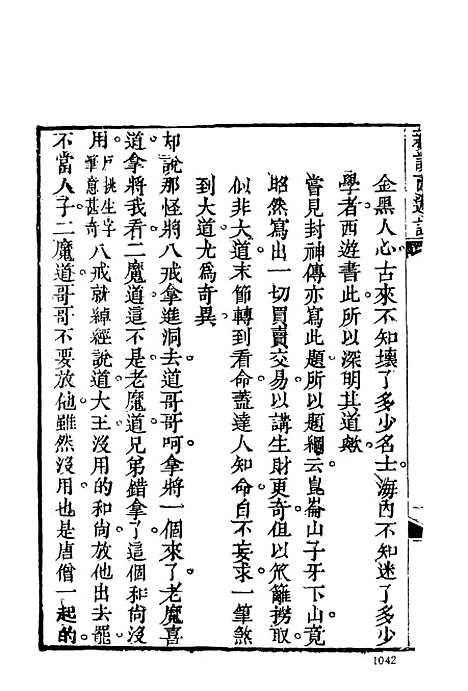 新說西遊記
金黑人心古來不知壞了多少名士海內不知迷了多少
學者西遊書此所以深明其道歟
嘗見封神傳亦寫此題所以題綱云崑崙山子牙下山竟
昭然寫出一切買賣交易以講生財更奇但以笊籬撈取
似非大道末節轉到看命蓋達人知命自不妄求一筆煞
到大道尤爲奇異
却說那怪將八戒拿進洞去道哥哥呵拿將一個來了老魔喜
道拿將我看二魔道這不是老魔道兄弟錯拿了這個和尚沒
用戶挑生字筆意甚奇八戒就綽經說道大王沒用的和尚放他出去罷
不當人子二魔道哥哥不要放他雖然沒用也是唐僧一起的
1042